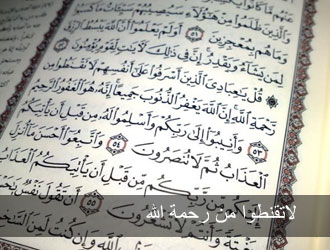 وَٱلَّذِينَ ظَلَمُوا۟ مِنْ هَٰٓؤُلَآءِ سَيُصِيبُهُمْ سَيِّـَٔاتُ مَا كَسَبُوا۟
وَمَا هُم بِمُعْجِزِينَ ٥١ أَوَلَمْ يَعْلَمُوٓا۟ أَنَّ ٱللَّهَ يَبْسُطُ
لِمَن يَشَآءُ وَيَقْدِرُ إِنَّ فِى ذَٰلِكَ لَءَايَٰتٍ لِّقَوْمٍ يُؤْمِنُونَ
قُلْ يَٰعِبَادِىَ ٱلَّذِينَ أَسْرَفُوا۟ عَلَىٰٓ أَنفُسِهِمْ لَا تَقْنَطُوا۟
رَّحْمَةِ ٱللَّهِ إِنَّ ٱللَّهَ يَغْفِرُ ٱلذُّنُوبَ جَمِيعًا إِنَّهُۥ هُوَ ٱلْغَفُورُ ٱلرَّحِيمُ
٥٣ وَأَنِيبُوٓا۟ إِلَىٰ رَبِّكُمْ وَأَسْلِمُوا۟ لَهُۥ مِن قَبْلِ أَن يَأْتِيَكُمُ
ٱلْعَذَابُ ثُمَّ لَا تُنصَرُونَ ٥٤ وَٱتَّبِعُوٓا۟ أَحْسَنَ مَآ أُنزِلَ
مِّن رَّبِّكُم مِّن قَبْلِ أَن يَأْتِيَكُمُ ٱلْعَذَابُ
لَا تَشْعُرُونَ ٥٥ أَن تَقُولَ نَفْسٌ
لاتقنطوا من رحمة الله
وَإِن كُنتُ لَمِنَ